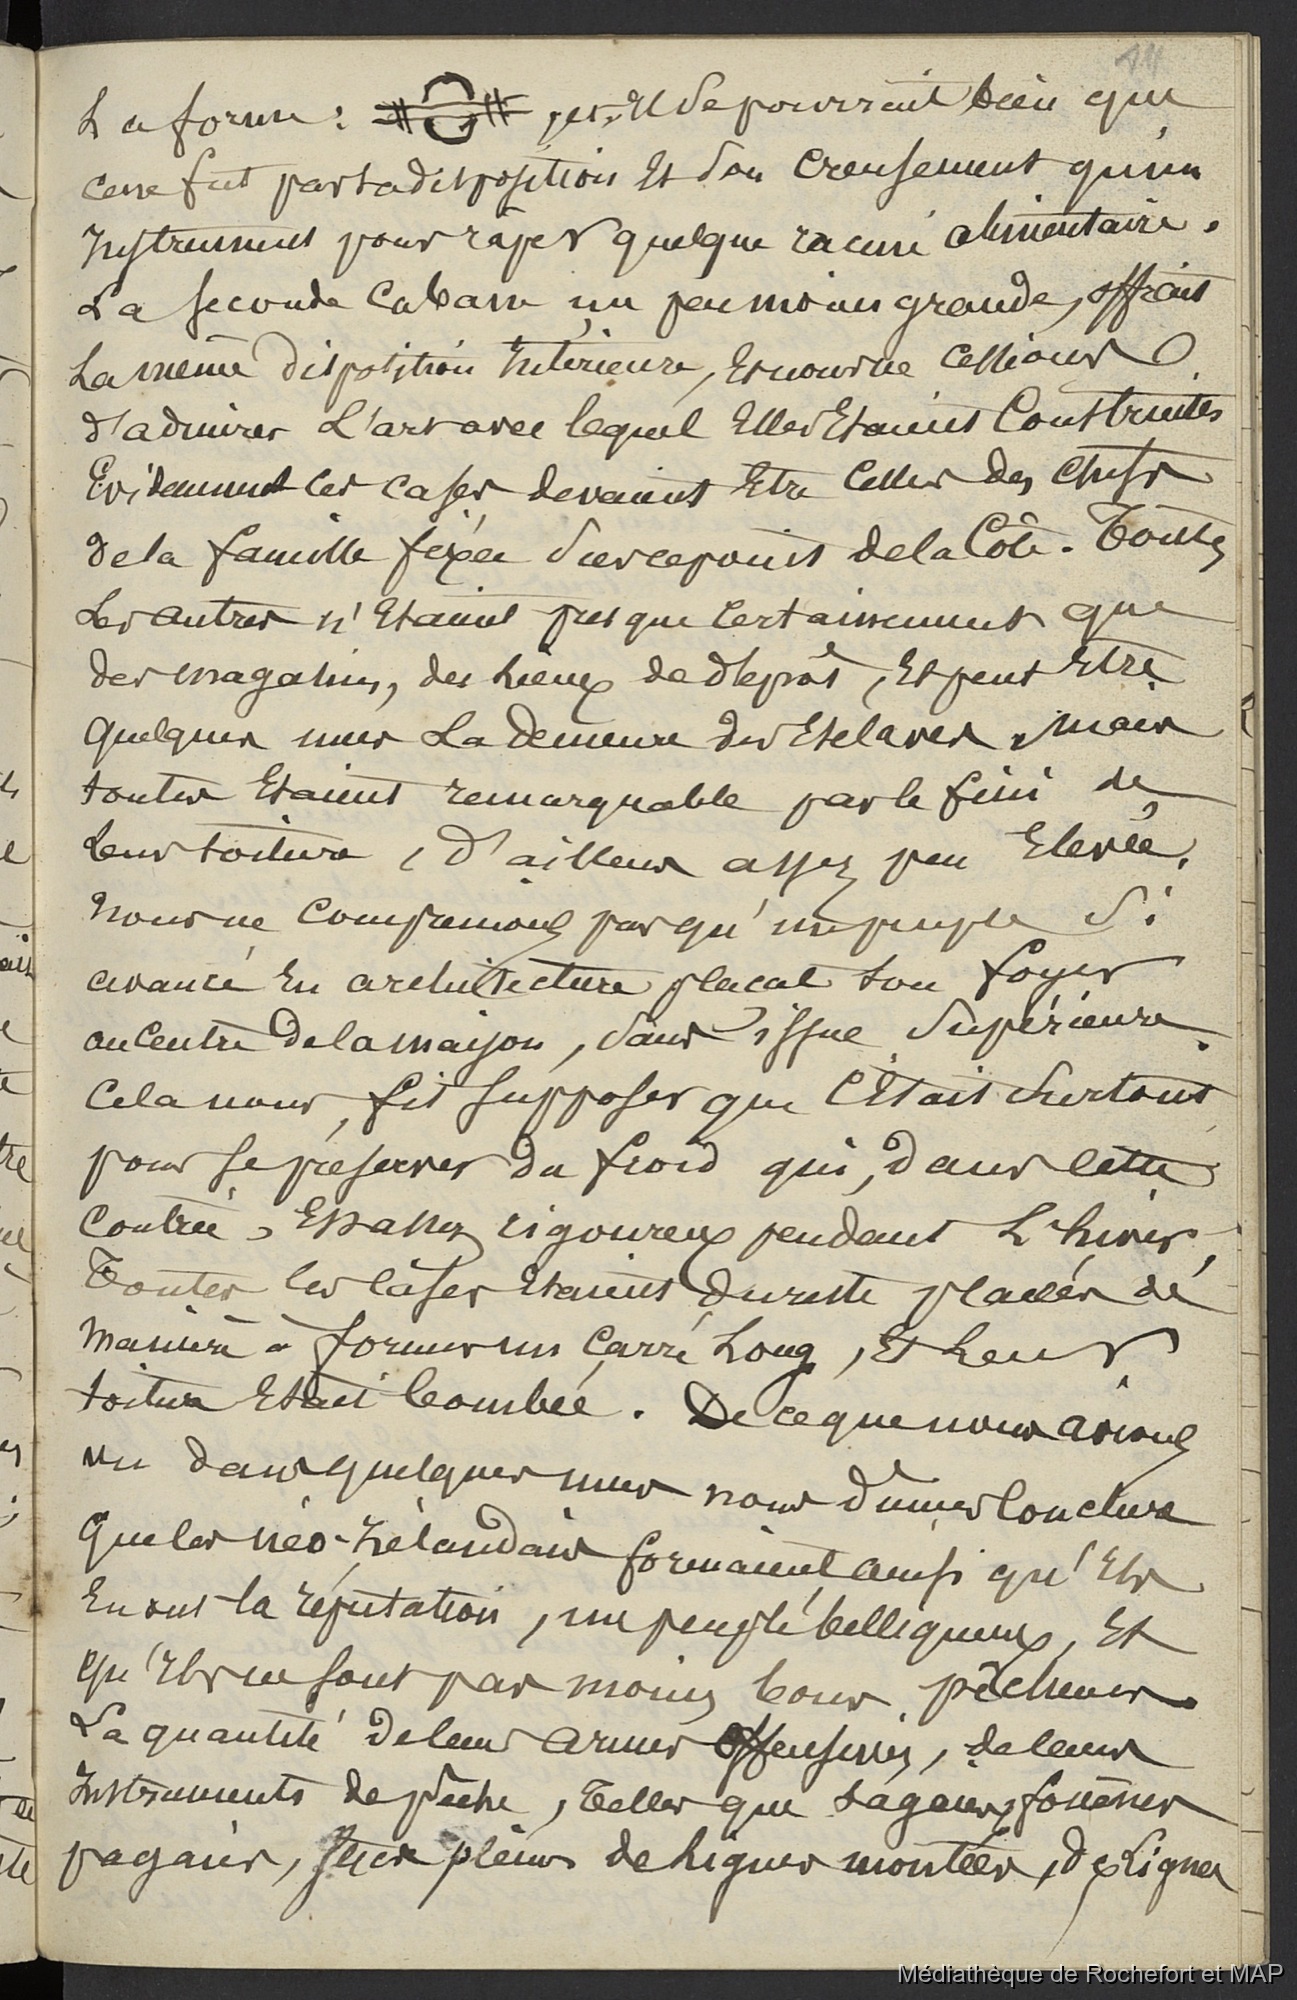 11
La forme : Il se pourrait bien que
ce ne fut par sa disposition Et son Creusement qu'un
Instrument pour râper quelque racine alimentaire.
La seconde Cabane un peu moins grande, offrait
La même disposition Intérieure, Et nous ne cessions
d'admirer L'art avec lequel Elles Etaient Construites
Evidemment les cases devaient Etre Celles des Chefs
de la famille fixée sur ce point de la Côte. Toutes
Les autres n'Etaient presque Certainement que
des magasins, des lieux de dépôt, Et peut Etre
quelques unes La demeure des Esclaves. mais
toutes Etaient remarquable par le fini de
leur toiture, d'ailleurs assez peu Elevée.
nous ne Comprenions pas qu'un peuple si
avancé En architecture placat son foyer
au Centre de la maison, sans issue supérieure.
Cela nous fit supposer que C'était surtout
pour se préserver du froid qui, dans cette
Contrée, Est assez rigoureux pendant L'hiver,
Toutes les câses Etaient du reste placées de
Manière à former un Carré Long, Et Leur
toiture Etait bombée. De ce que nous avions
vu dans quelques unes nous dûmes Conclure
que les néo-zélandais formaient ainsi qu'ils
En ont la réputation, un peuple belliqueux, Et
qu'Ils ne sont pas moins bons pêcheurs.
La quantité de leurs armes offensives, de leurs
Instruments de pêche, Telles que sagaies, foënes
pagaies, pleins de lignes montées, de Lignes
Médiathèque de Rochefort et MAP